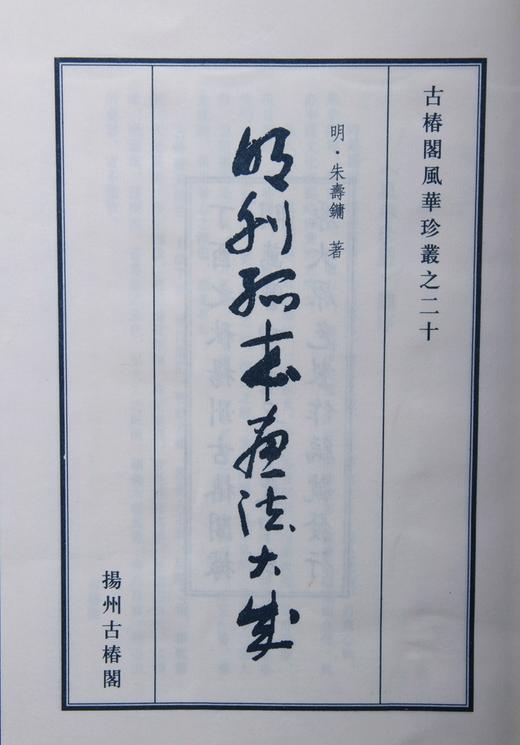 古椿閣風華珍叢之二十
明·朱壽鏞 著
明刊孤本畫法大成
揚州古椿閣